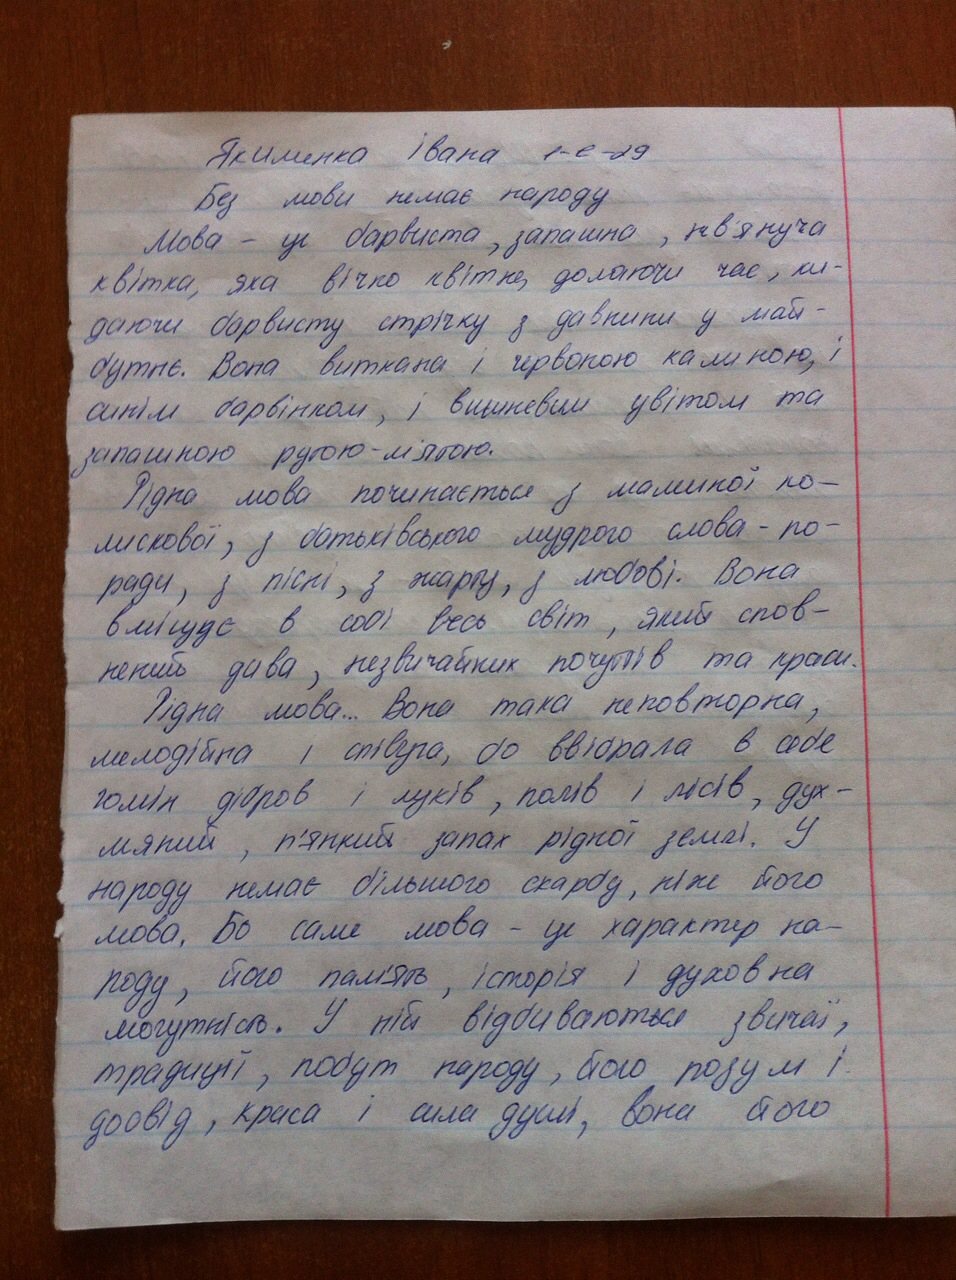 Якименка Івана 1-е-29
Без мови немає народу
Мова – це барвиста, запашна, нев'януча
квітка, яка вічно квітне, долаючи час, ки-
даючи барвисту стрічку з давнини у май-
бутнє. Вона виткана і червоною калиною, і
синім барвінком, і вишневим цвітом та
запашною рутою-м'ятою.
Рідна мова починається з маминої ко-
лискової, з батьківського мудрого слова-по-
ради, з пісні, з жарту, з любові. Вона
вміщує в собі весь світ, який спов-
нений дива, незвичайних почуттів та краси.
Рідна мова... Вона така неповторна,
мелодійна і співуча, бо ввібрала в себе
гомін дібров і луків, полів і лісів, дух-
мяний, п'янкий запах рідної землі. У
народу немає більшого скарбу, ніж його
мова. Бо саме мова – це характер на-
роду, його пам'ять, історія і духовна
могутність. У ній відбиваються звичаї,
традиції, побут народу, його розум і
досвід, краса і сила душі, вона його